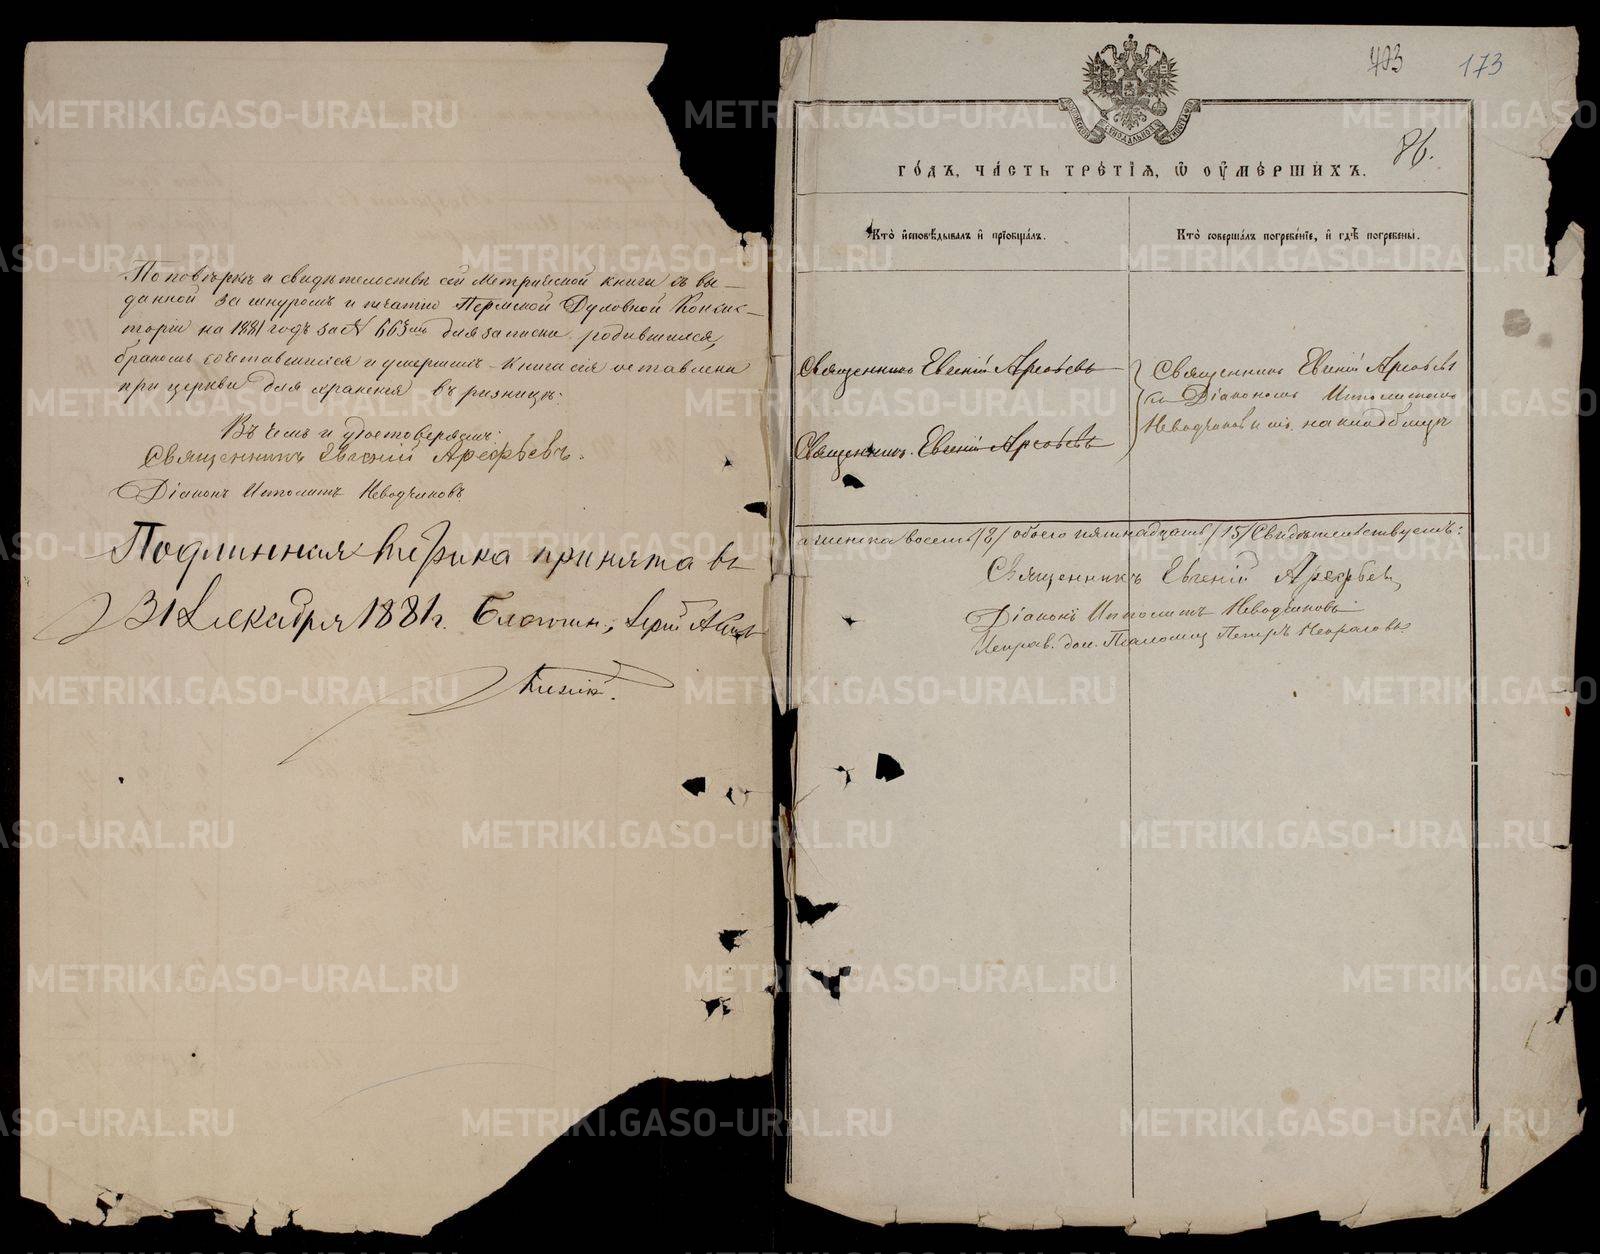 По поверке и свидетельстве сей Метрической книги съ вы-
данной за шнуромъ и печатію Пермской Духовной Консис-
торіи на 1881 годъ за № 663мъ для записки родившихся,
бракомъ сочетавшихся и умершихъ. Книга сія оставлена
при церкви для храненія въ ризнице.
Въ чемъ и удостоверяемъ:
Священникъ Евгеній Арефьевъ.
Діаконъ Ипполитъ Неводчиковъ
Подлинная метрика принята въ
31 Декабря 1881 г. Благочин,
473 173
86.
ГОДЪ, ЧАСТЬ ТРЕТІѦ, Ѿ ОУМЕРШИХЪ.
Кто исповѣдывалъ и пріобщалъ.
Кто совершалъ погребеніе, и гдѣ погребены.
Священникъ Евгеній Арефьевъ
Священникъ Евгеній Арефьевъ
съ Діакономъ Ипполитомъ
Неводчиковымъ на кладбищѣ
Священник. Евгеній Арефьевъ
а женска восемь /8/ обоего пятнадцать /15/ Свидѣтельствуемъ:
Священникъ Евгеній Арефьевъ
Діаконъ Ипполитъ Неводчиковъ
Исправ. дол. Псаломщ. Петръ Некрасовъ
METRIKI.GASO-URAL.RU